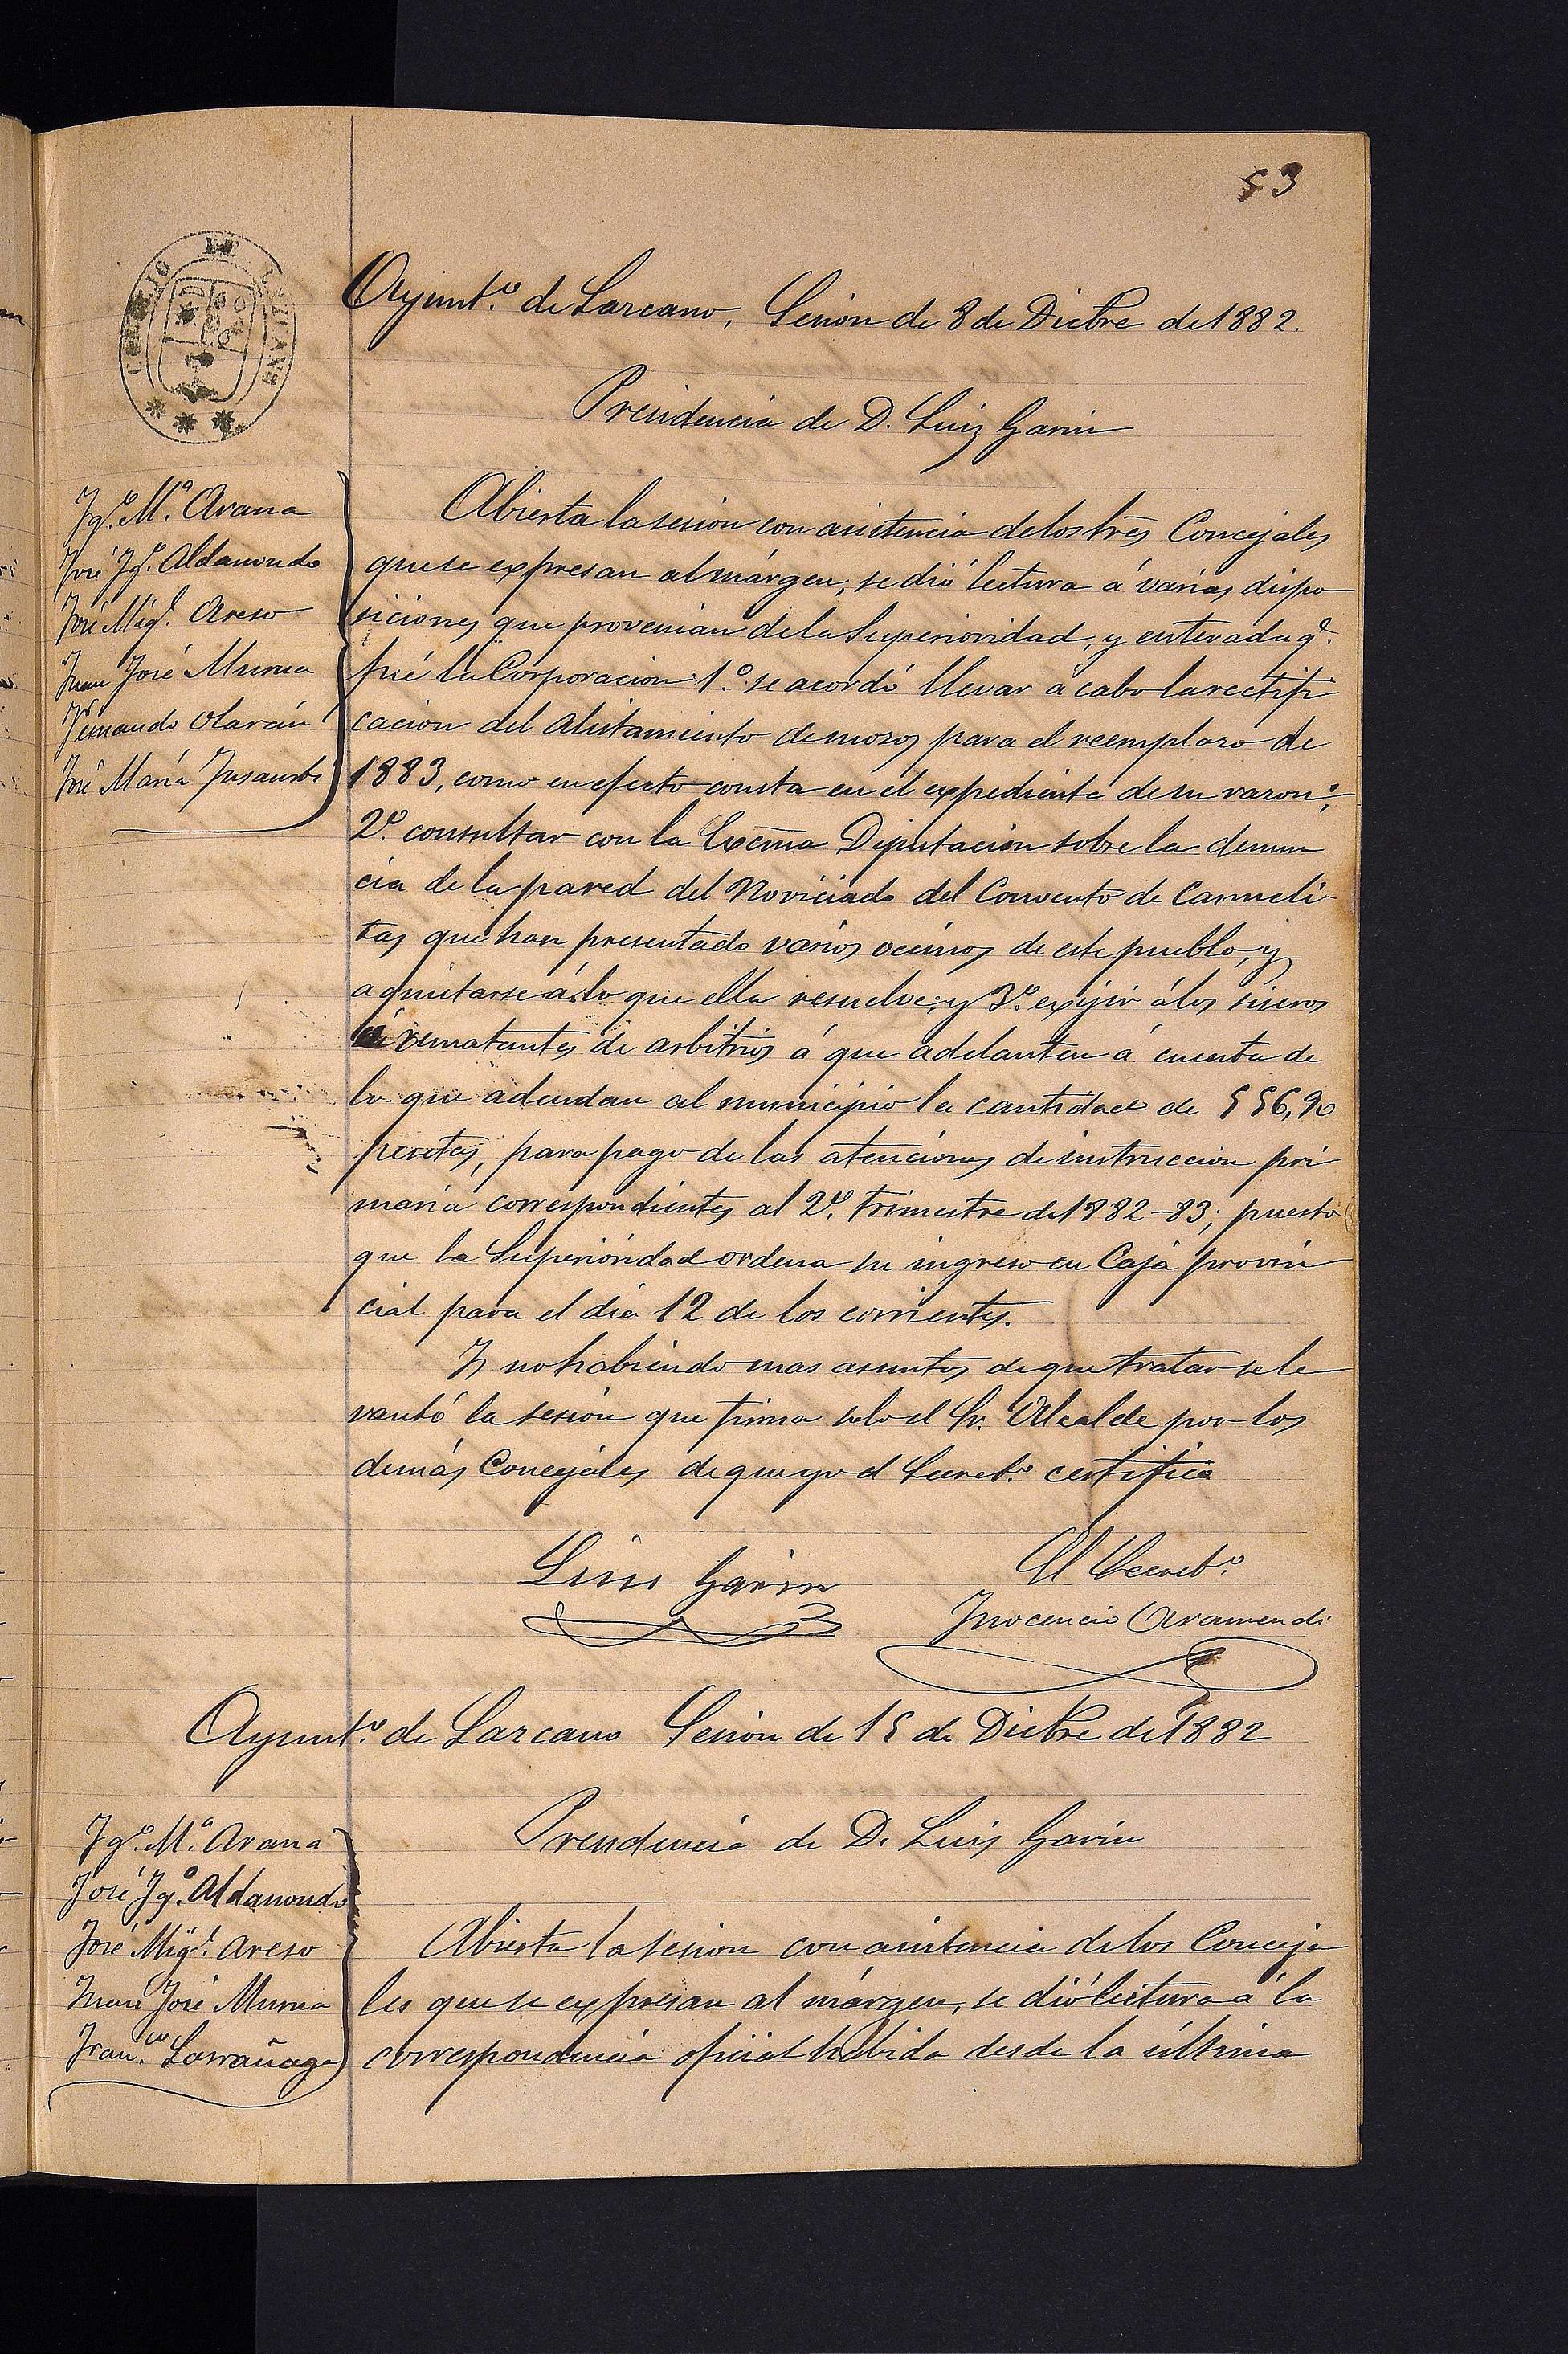 53
CONCEJO DE LAZCANO
Ayunt.º de Lazcano, Sesion de 8 de Dicbre de 1882.
Presidencia de D. Luiz Garin
Ygº Mª Arana
José Ygº Aldamondo
José Migl. Areso
Juan José Murua
Fernando Olarán
José María Insausti
Abierta la sesion con asistencia de los tres Concejales
que se expresan al márgen, se dió lectura á várias dispo
siciones que provenian de la Superioridad, y enterada q.e
fué la Corporacion 1.º se acordó llevar á cabo la rectifi
cacion del alistamiento de mozos para el reemplazo de
1883, como en efecto consta en el expediente de su razon;
2.º consultar con la Excma Diputacion sobre la denun
cia de la pared del Noviciado del Convento de Carmeli
tas que han presentado varios vecinos de este pueblo, y
aquietarse á lo que ella resuelve; y 3.º exijir á los
rematantes de arbitrios á que adelanten á cuenta de
lo que adeudan al municipio la cantidad de 556,90
pesetas, para pago de las atenciones de instruccion pri
maria correspondientes al 2.º trimestre de 1882-83; puesto
que la Superioridad ordena su ingreso en Caja provin
cial para el dia 12 de los corrientes.
Y no habiendo mas asuntos de que tratar se le
vantó la sesion que firma solo el Sr. Alcalde por los
demás Concejales de que yo el Secret.º certifico
Luis Garin
El Secret.º
Inocencio Aramendi
Ayunt.º de Lazcano Sesion de 15 de Dicbre de 1882
Presidencia de D. Luis Garin
Ygº Mª Arana
José Ygº Aldamondo
José Migl. Areso
Juan José Murua
Fran.co Larrañaga
Abierta la sesion con asistencia de los Conceja
les que se expresan al márgen, se dió lectura á la
correspondencia oficial habida desde la última